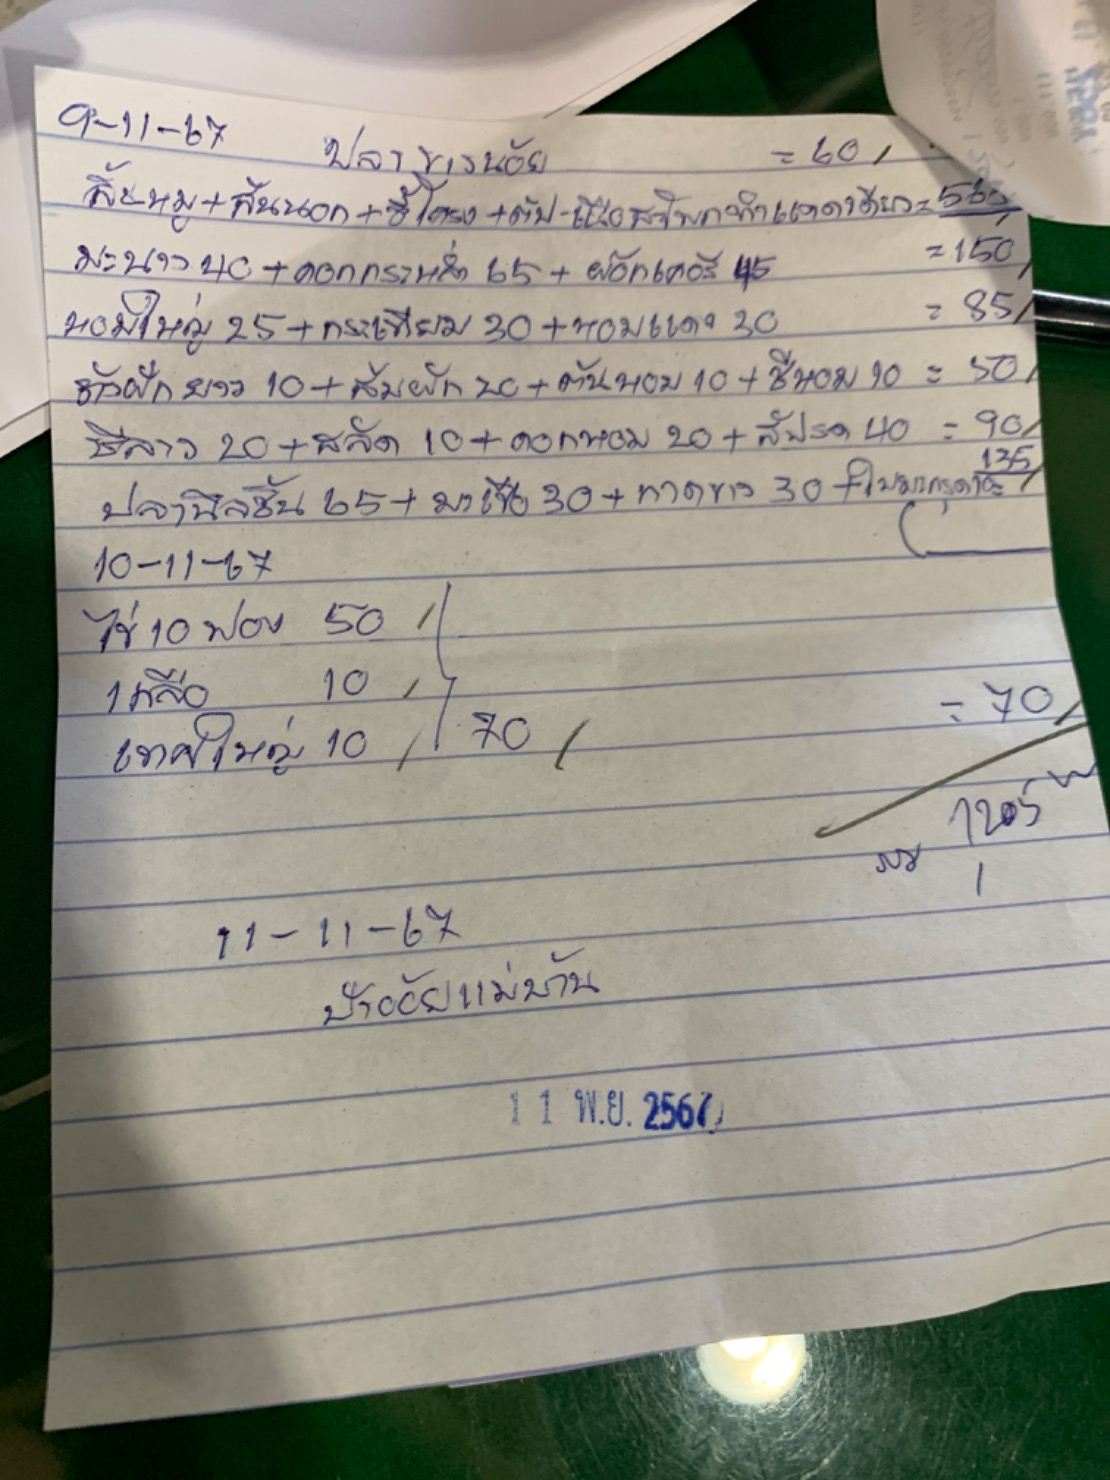 9-11-67
ปลาขาวน้อย = 60
ลิ้นหมู+สันนอก+ซี่โครง+ตับ-เนื้อสะโพกทำแดดเดียว=565
มะนาว 40+ดอกกะหล่ำ 65+ 45 =150
หอมใหญ่ 25+กระเทียม 30+หอมแดง 30 = 85
ถั่วฝักยาว 10+ส้มผัก 20+ต้นหอม 10+ชีหอม 10 = 50
ชีลาว 20+สลัด 10+ดอกหอม 20+สัปรด 40 = 90
ปลานิลชิ้น 65+มะเขือ 30+กาดขาว 30+ใบมะกรูด 10= 135
10-11-67
ไข่ 10 ฟอง 50
เกลือ 10
เทศใหญ่ 10 70 = 70
11-11-67
ป้าอ้อยแม่บ้าน
11 พ.ย. 2567